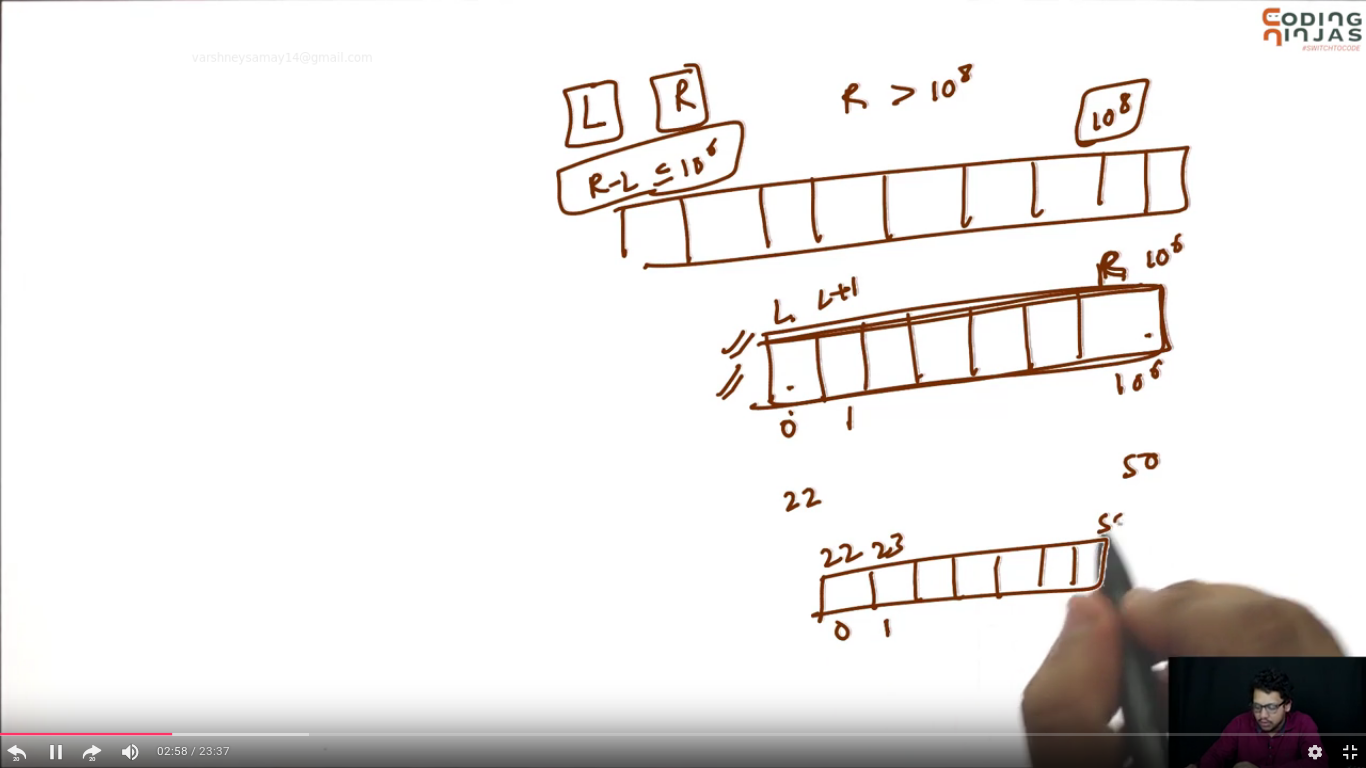 CODING
NINJAS
#SWITCHTOCODE
varshneysamay14@gmail.com
L R R > 10⁸ 10⁸
R-L ≤ 10⁶
L L+1 R 10⁶
0 1 10⁶
22 50
22 23
0 1
02:58 / 23:37
20 20